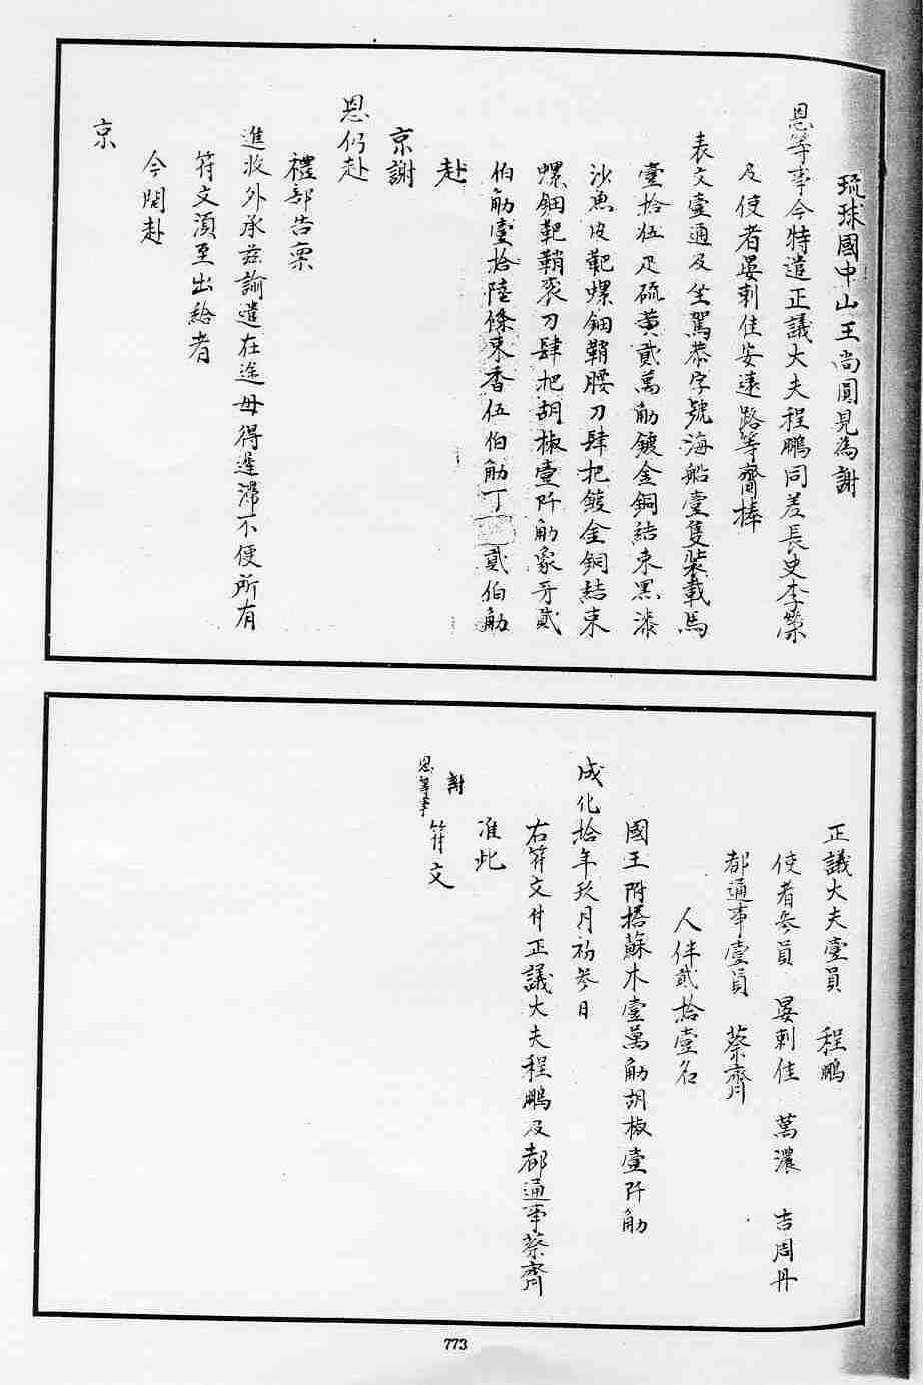 琉球國中山王尚圓見為謝
恩等事今特遣正議大夫程鵬同差長史李榮
及使者晏剌佳安遠路等齎捧
表文壹通及坐駕恭字號海船壹隻裝載馬
壹拾伍疋硫黄貳萬觔鍍金銅結束黑漆
沙魚皮靶螺鈿鞘腰刀肆把鍍金銅結束
螺鈿靶鞘衮刀肆把胡椒壹阡觔象牙貳
伯觔壹拾陸條束香伍伯觔丁貳伯觔
赴
京謝
恩仍赴
禮部告禀
進收外承玆諭遣在途毋得遲滯不便所有
符文湏至出給者
今開赴
京
正議大夫壹員 程鵬
使者叅員 晏剌佳 萬濃 吉周丹
都通事壹員 蔡齊
人伴貳拾壹名
國王附搭蘇木壹萬觔胡椒壹阡觔
成化拾年玖月初叅日
右符文付正議大夫程鵬及都通事蔡齊
准此
謝
恩等事 符文
773